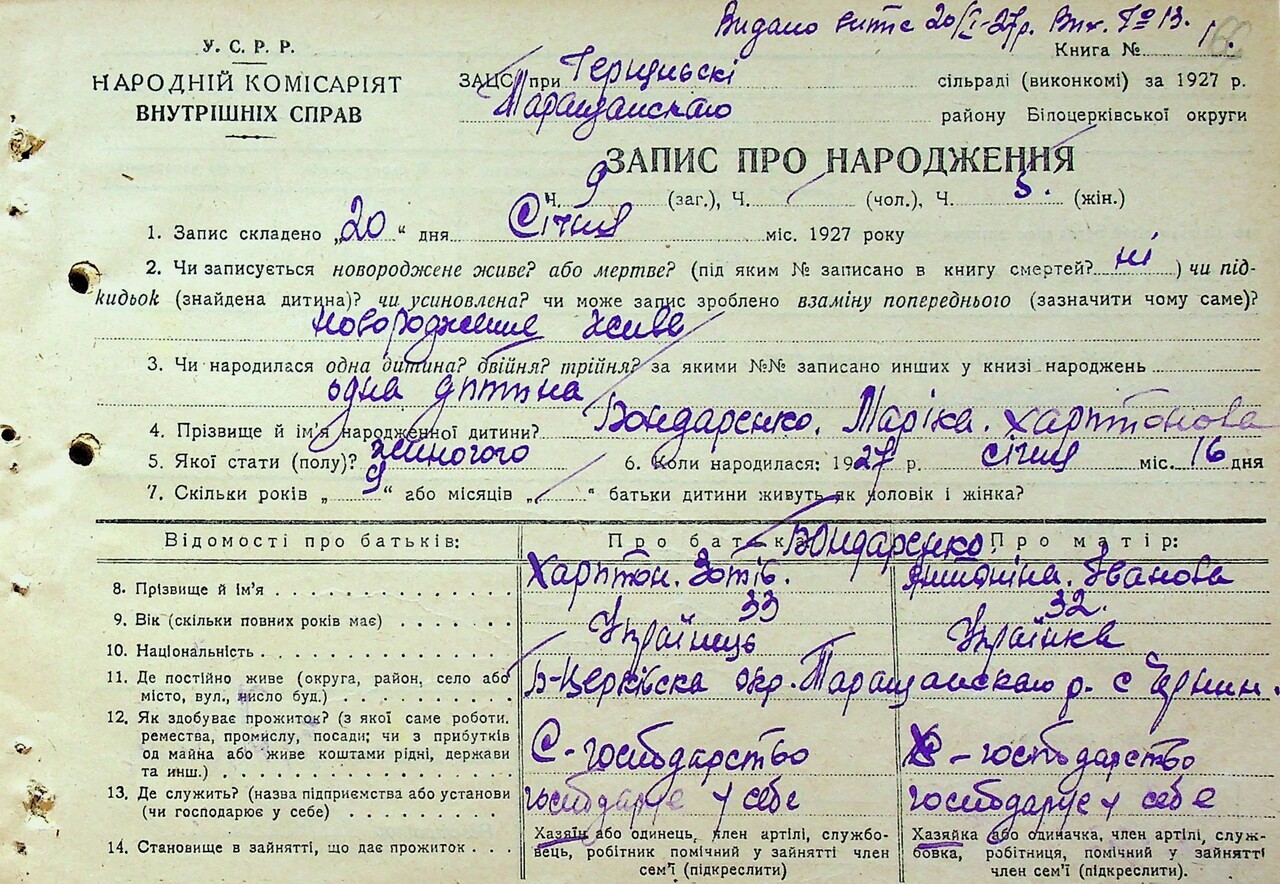 Видано витяг 20/I-27р. Вих. № 13.
У. С. Р. Р.
НАРОДНІЙ КОМІСАРІЯТ
ВНУТРІШНІХ СПРАВ
Книга № 1.
ЗАЦС при сільраді (виконкомі) за 1927 р.
Таращанскаго району Білоцерківської округи
ЗАПИС ПРО НАРОДЖЕННЯ
Ч. 9 (заг.), Ч. / (чол.), Ч. 5. (жін.)
1. Запис складено „20“ дня Січня міс. 1927 року
2. Чи записується новороджене живе? або мертве? (під яким № записано в книгу смертей? ні) чи під-
кидьок (знайдена дитина)? чи усиновлена? чи може запис зроблено взаміну попереднього (зазначити чому саме)?
новорожение живе
3. Чи народилася одна дитина? двійня? трійня? за якими №№ записано инших у книзі народжень
одна дитина
4. Прізвище й ім'я народженної дитини? Бондарєнко. Маріка. Харитонова
5. Якої стати (полу)? женского 6. Коли народилася: 1927 р. січня міс. 16 дня
7. Скільки років „9“ або місяців „ “ батьки дитини живуть як чоловік і жінка?
Відомості про батьків: Про батька: Про матір:
Бондарєнко
8. Прізвище й ім'я Харитон. Зотів. Іванова
9. Вік (скільки повних років має) 33 32.
10. Національність Українець Українка
11. Де постійно живе (округа, район, село або
місто, вул., число буд.) Б-Церківска окр. Таращанскаго р. с
12. Як здобуває прожиток? (з якої саме роботи,
ремества, промислу, посади; чи з прибутків
од майна або живе коштами рідні, держави
та инш.) С-господарство С-господарство
13. Де служить? (назва підприємства або установи
(чи господарює у себе) господарує у себе господарує у себе
14. Становище в зайнятті, що дає прожиток
Хазяїн або одинець, член артілі, службо-
вець, робітник помічний у зайнятті член
сем'ї (підкреслити)
Хазяйка або одиначка, член артілі, служ-
бовка, робітниця, помічний у зайнятті
член сем'ї (підкреслити).